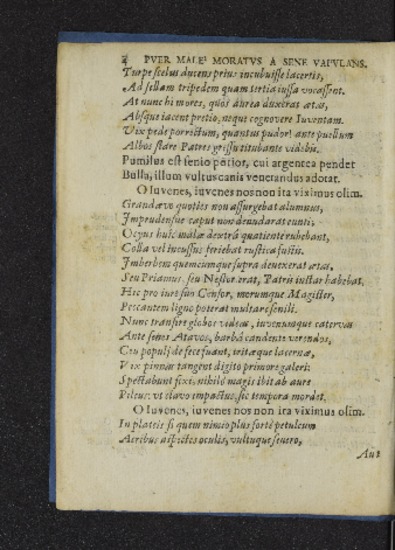 4 PVER MALE' MORATVS A SENE VAPVLANS.
Turpe scelus ducens prius incubuisse lacertis,
Ad sellam tripedem quam tertia iussa vocassent.
At nunc hi mores, quos aurea duxerat ætas,
Absque iacent pretio, neque cognovere Iuventam.
Vix pede porrectum, quantus pudor! ante puellum
Albos stare Patres gressu titubante videbis.
Pumilus est senio potior, cui argentea pendet
Bulla, illum vultus canis venerandus adorat.
O Iuvenes, iuvenes nos non ita viximus olim.
Grandævo quoties non assurgebat alumnus,
Imprudensue caput non denudarat eunti;
Ocyus huic malæ dextrâ quatiente rubebant,
Colla vel incussus feriebat rustica fustis.
Imberbem quemcumque supra devexerat ætas,
Seu Priamus, seu Nestor erat, Patris instar habebat.
Hic pro iure suo Censor, morumque Magister,
Peccantem ligno poterat multare senili.
Nunc transire globos videas, iuvenumque catervas
Ante senes Atavos, barbâ candente verendos,
Ceu populi de fece fuant, tritæque lacernæ,
Vix pinnæ tangent digito primore galeri:
Spectabunt fixi, nihilò magis ibit ab aure
Pileus: ut clavo impactus, sic tempora mordet.
O Iuvenes, iuvenes nos non ita viximus olim.
In plateis si quem nimio plus fortè petulcum
Acribus aspectes oculis, vultuque severo,
Aut